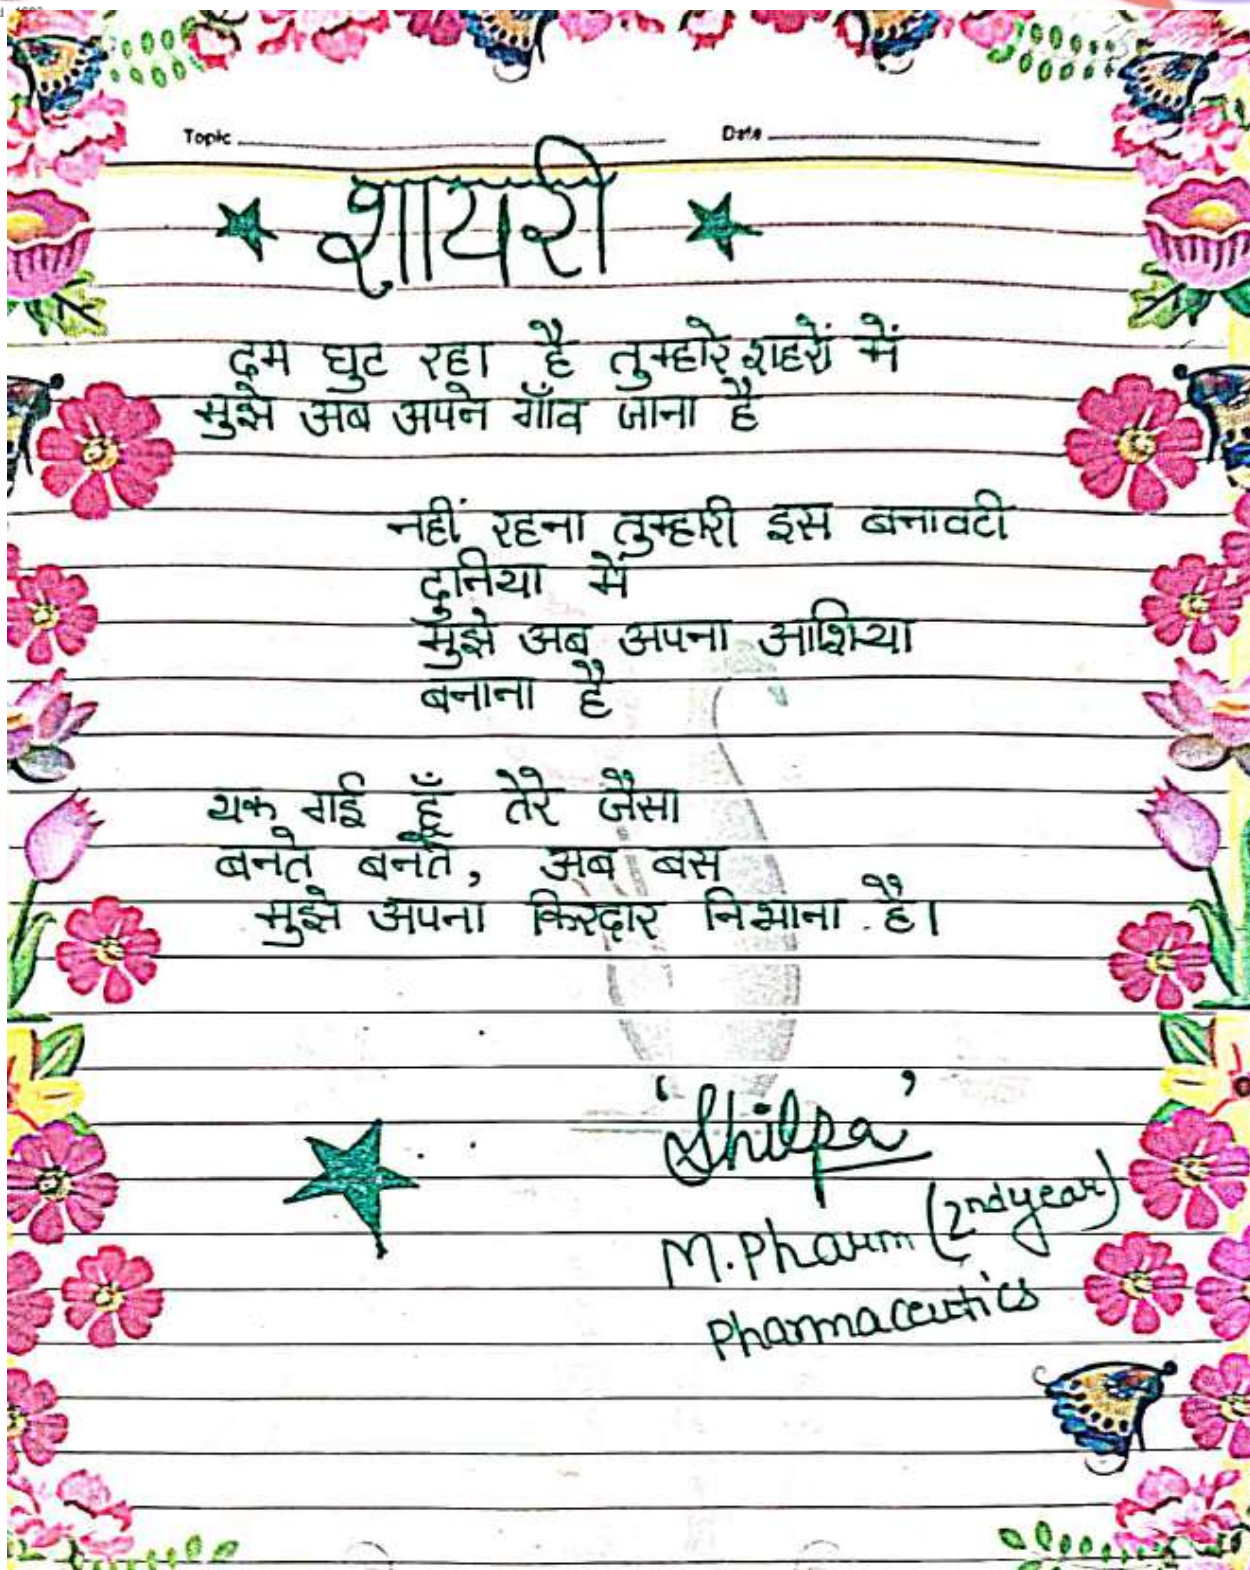 Topic
Date
शायरी
दम घुट रहा है तुम्हारे शहरों में
मुझे अब अपने गाँव जाना है
नहीं रहना तुम्हारी इस बनावटी
दुनिया में
मुझे अब अपना आशिया
बनाना है
थक गई हूँ तेरे जैसा
बनते बनते, अब बस
मुझे अपना किरदार निभाना है।
'Shilpa'
M.Pharm (2nd year)
Pharmaceutics